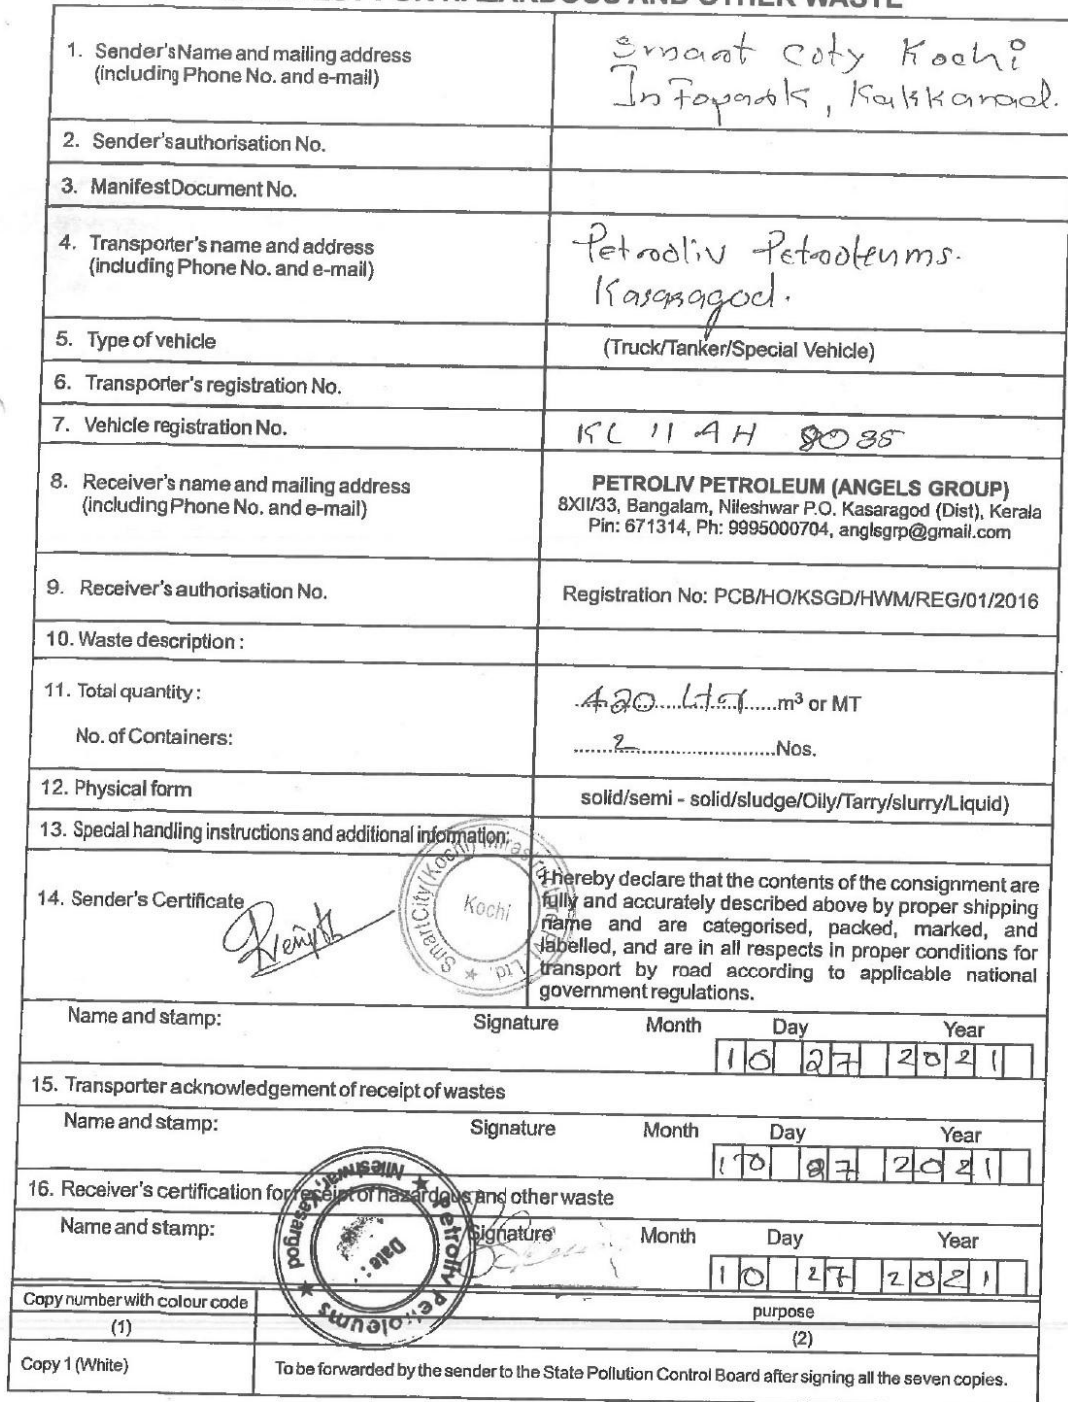 HAZARDOUS AND OTHER WASTE
1. Sender's Name and mailing address
(including Phone No. and e-mail)
Smart City Kochi
Infopark, Kakkanad.
2. Sender's authorisation No.
3. Manifest Document No.
4. Transporter's name and address
(including Phone No. and e-mail)
Petroliv Petroleums.
Kasaragod.
5. Type of vehicle
(Truck/Tanker/Special Vehicle)
6. Transporter's registration No.
7. Vehicle registration No.
KL 11 AH 9035
8. Receiver's name and mailing address
(including Phone No. and e-mail)
PETROLIV PETROLEUM (ANGELS GROUP)
8XII/33, Bangalam, Nileshwar P.O. Kasaragod (Dist), Kerala
Pin: 671314, Ph: 9995000704, anglsgrp@gmail.com
9. Receiver's authorisation No.
Registration No: PCB/HO/KSGD/HWM/REG/01/2016
10. Waste description :
11. Total quantity :
420 Ltr m³ or MT
No. of Containers:
2 Nos.
12. Physical form
solid/semi - solid/sludge/Oily/Tarry/slurry/Liquid)
13. Special handling instructions and additional information:
14. Sender's Certificate
SmartCity (Kochi) Infrastructure Pvt. Ltd. ★
Kochi
I hereby declare that the contents of the consignment are
fully and accurately described above by proper shipping
name and are categorised, packed, marked, and
labelled, and are in all respects in proper conditions for
transport by road according to applicable national
government regulations.
Name and stamp: Signature Month Day Year
10 27 2021
15. Transporter acknowledgement of receipt of wastes
Name and stamp: Signature Month Day Year
10 27 2021
16. Receiver's certification for receipt of hazardous and other waste
Name and stamp: Signature Month Day Year
10 27 2021
★ Petroliv Petroleums ★ Nileshwar, Kasargod
Date :
Copy number with colour code purpose
(1) (2)
Copy 1 (White) To be forwarded by the sender to the State Pollution Control Board after signing all the seven copies.